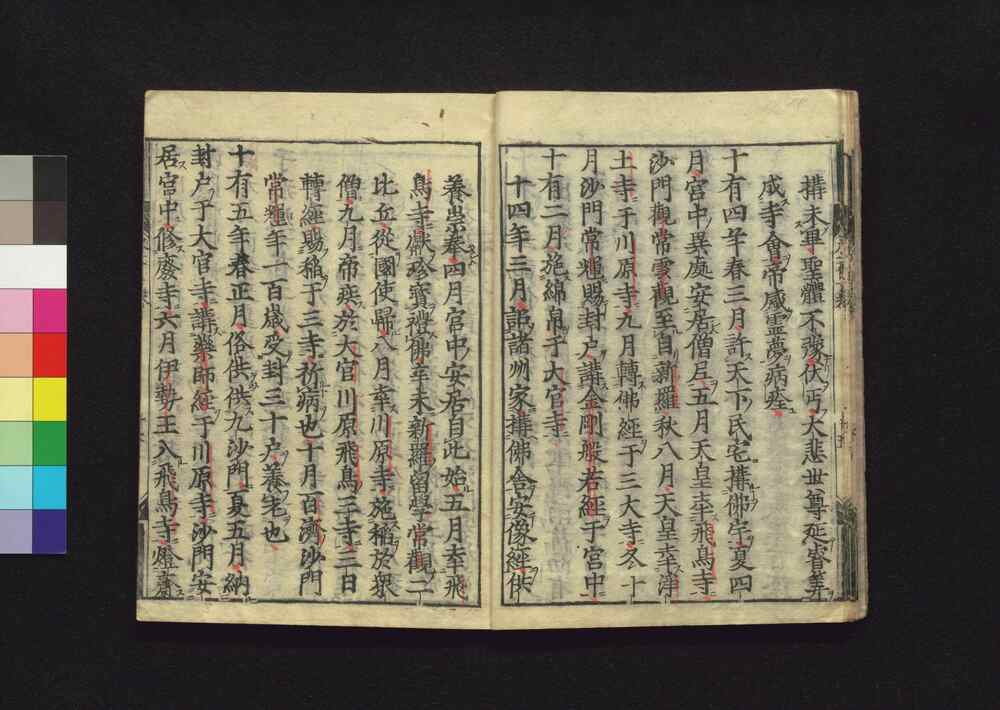 搆未畢聖體不豫伏丐大悲世尊延睿筭
成寺會帝感霊夢病痊
十有四年春三月許天下氏宅搆佛宇夏四
月宮中異處安居僧尼五月天皇幸飛鳥寺
沙門觀常雲觀至自新羅秋八月天皇幸淨
土寺于川原寺九月轉佛經于三大寺冬十
月沙門常輝賜封户講金剛般若經于宮中
十有二月施綿帛于大官寺
十四年三月詔諸州家搆佛舎安像經供
養崇奉四月宮中安居自此始五月幸飛
鳥寺獻珍寶禮佛辛未新羅留學常觀二
比丘從國使歸八月幸川原寺施稲於衆
僧九月帝疾於大官川原飛鳥三寺三日
轉經賜稲于三寺祈病也十月百濟沙門
常輝年一百歳受封三十户養老也
十有五年春正月俗供供九沙門夏五月納
封户于大官寺講藥師經于川原寺沙門安
居宮中修廢寺六月伊勢王入飛鳥寺燈齋